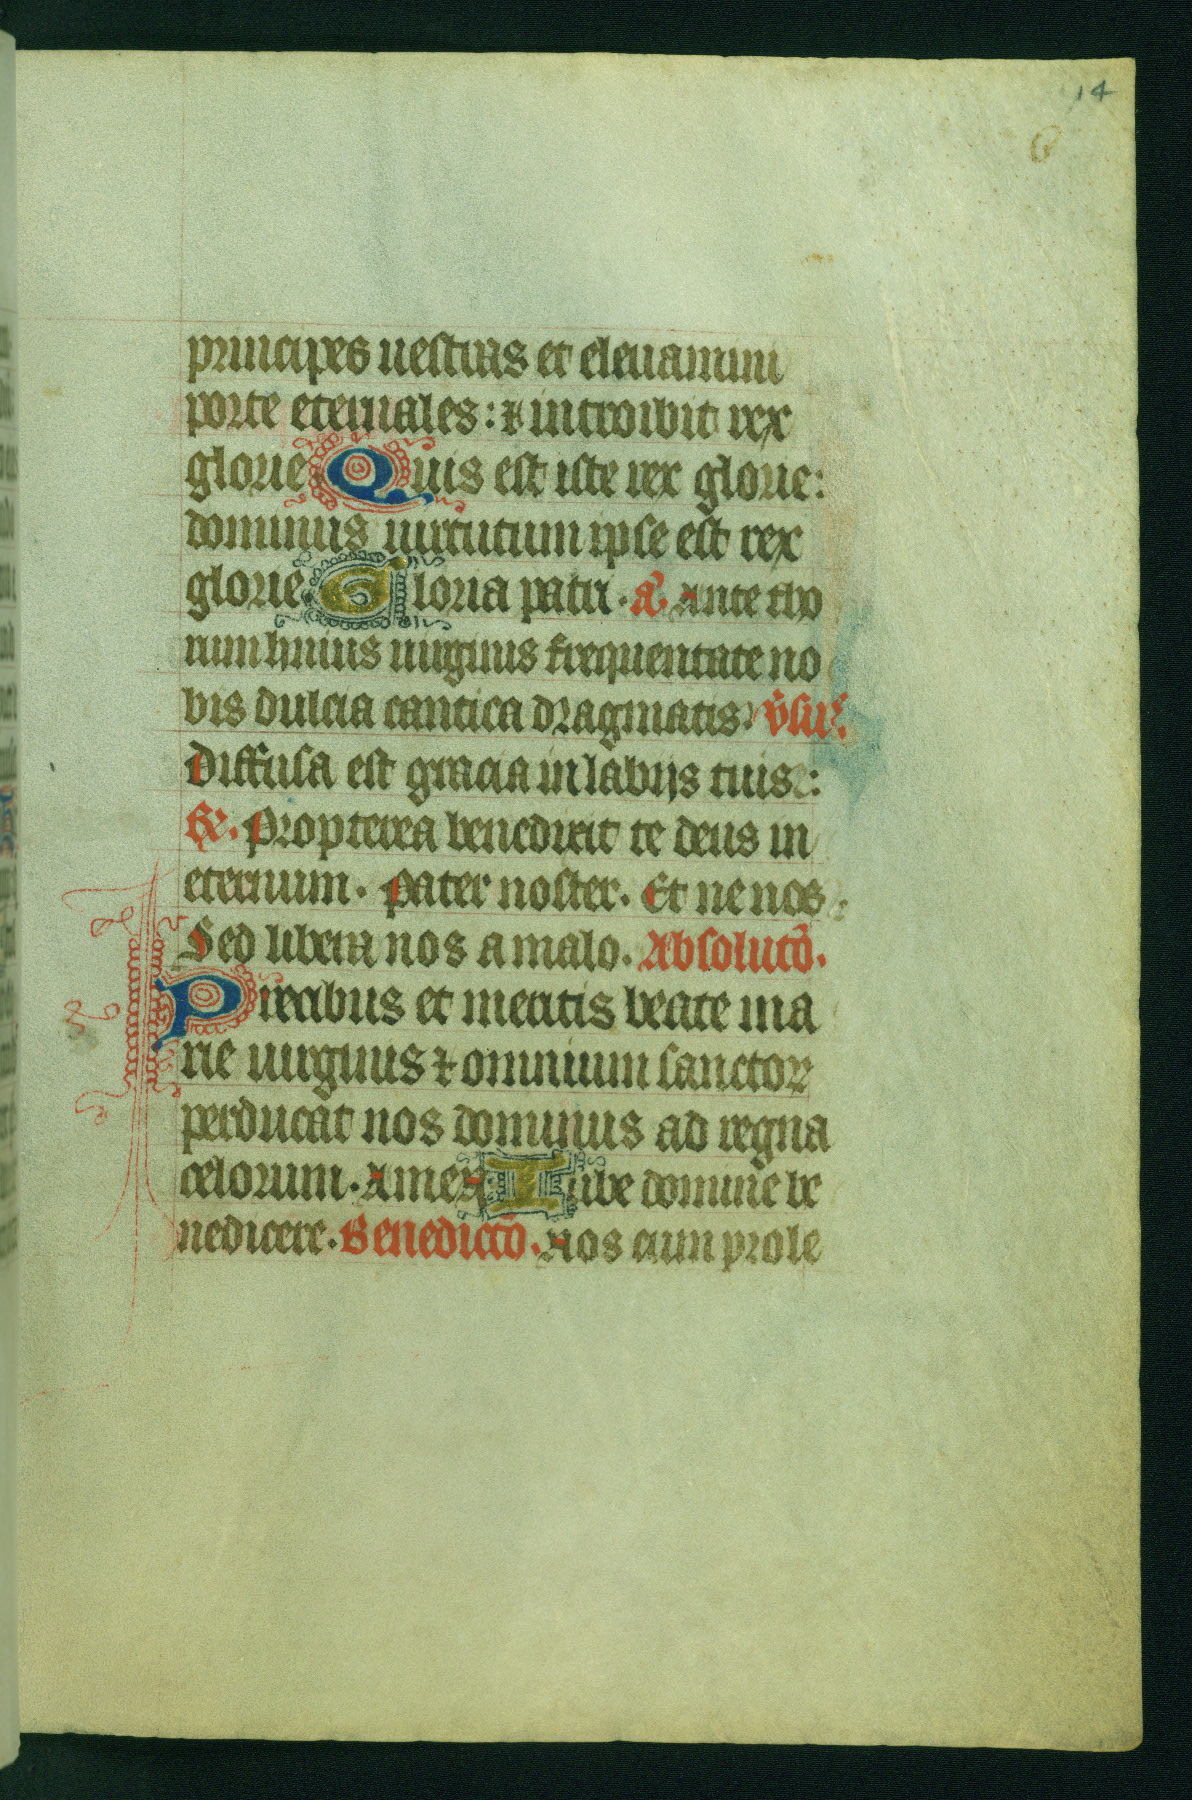 14
6
principes uestras et eleuamini
porte eternales: ⁊ introibit rex
glorie Quis est iste rex glorie:
dominus uirtutum ipse est rex
glorie. Gloria patri. añ. Ante tho
rum huius uirginis frequentate no
bis dulcia cantica dragmatis. v̄sus.
Diffusa est gracia in labijs tuis:
℟. Propterea benedixit te deus in
eternum. Pater noster. Et ne nos
Sed libera nos a malo. Absolutō.
Precibus et meritis beate ma
rie uirginis ⁊ omnium sanctoꝝ
perducat nos dominus ad regna
celorum. Amen Iube domine be
nedicere. Benedictō. Nos cum prole